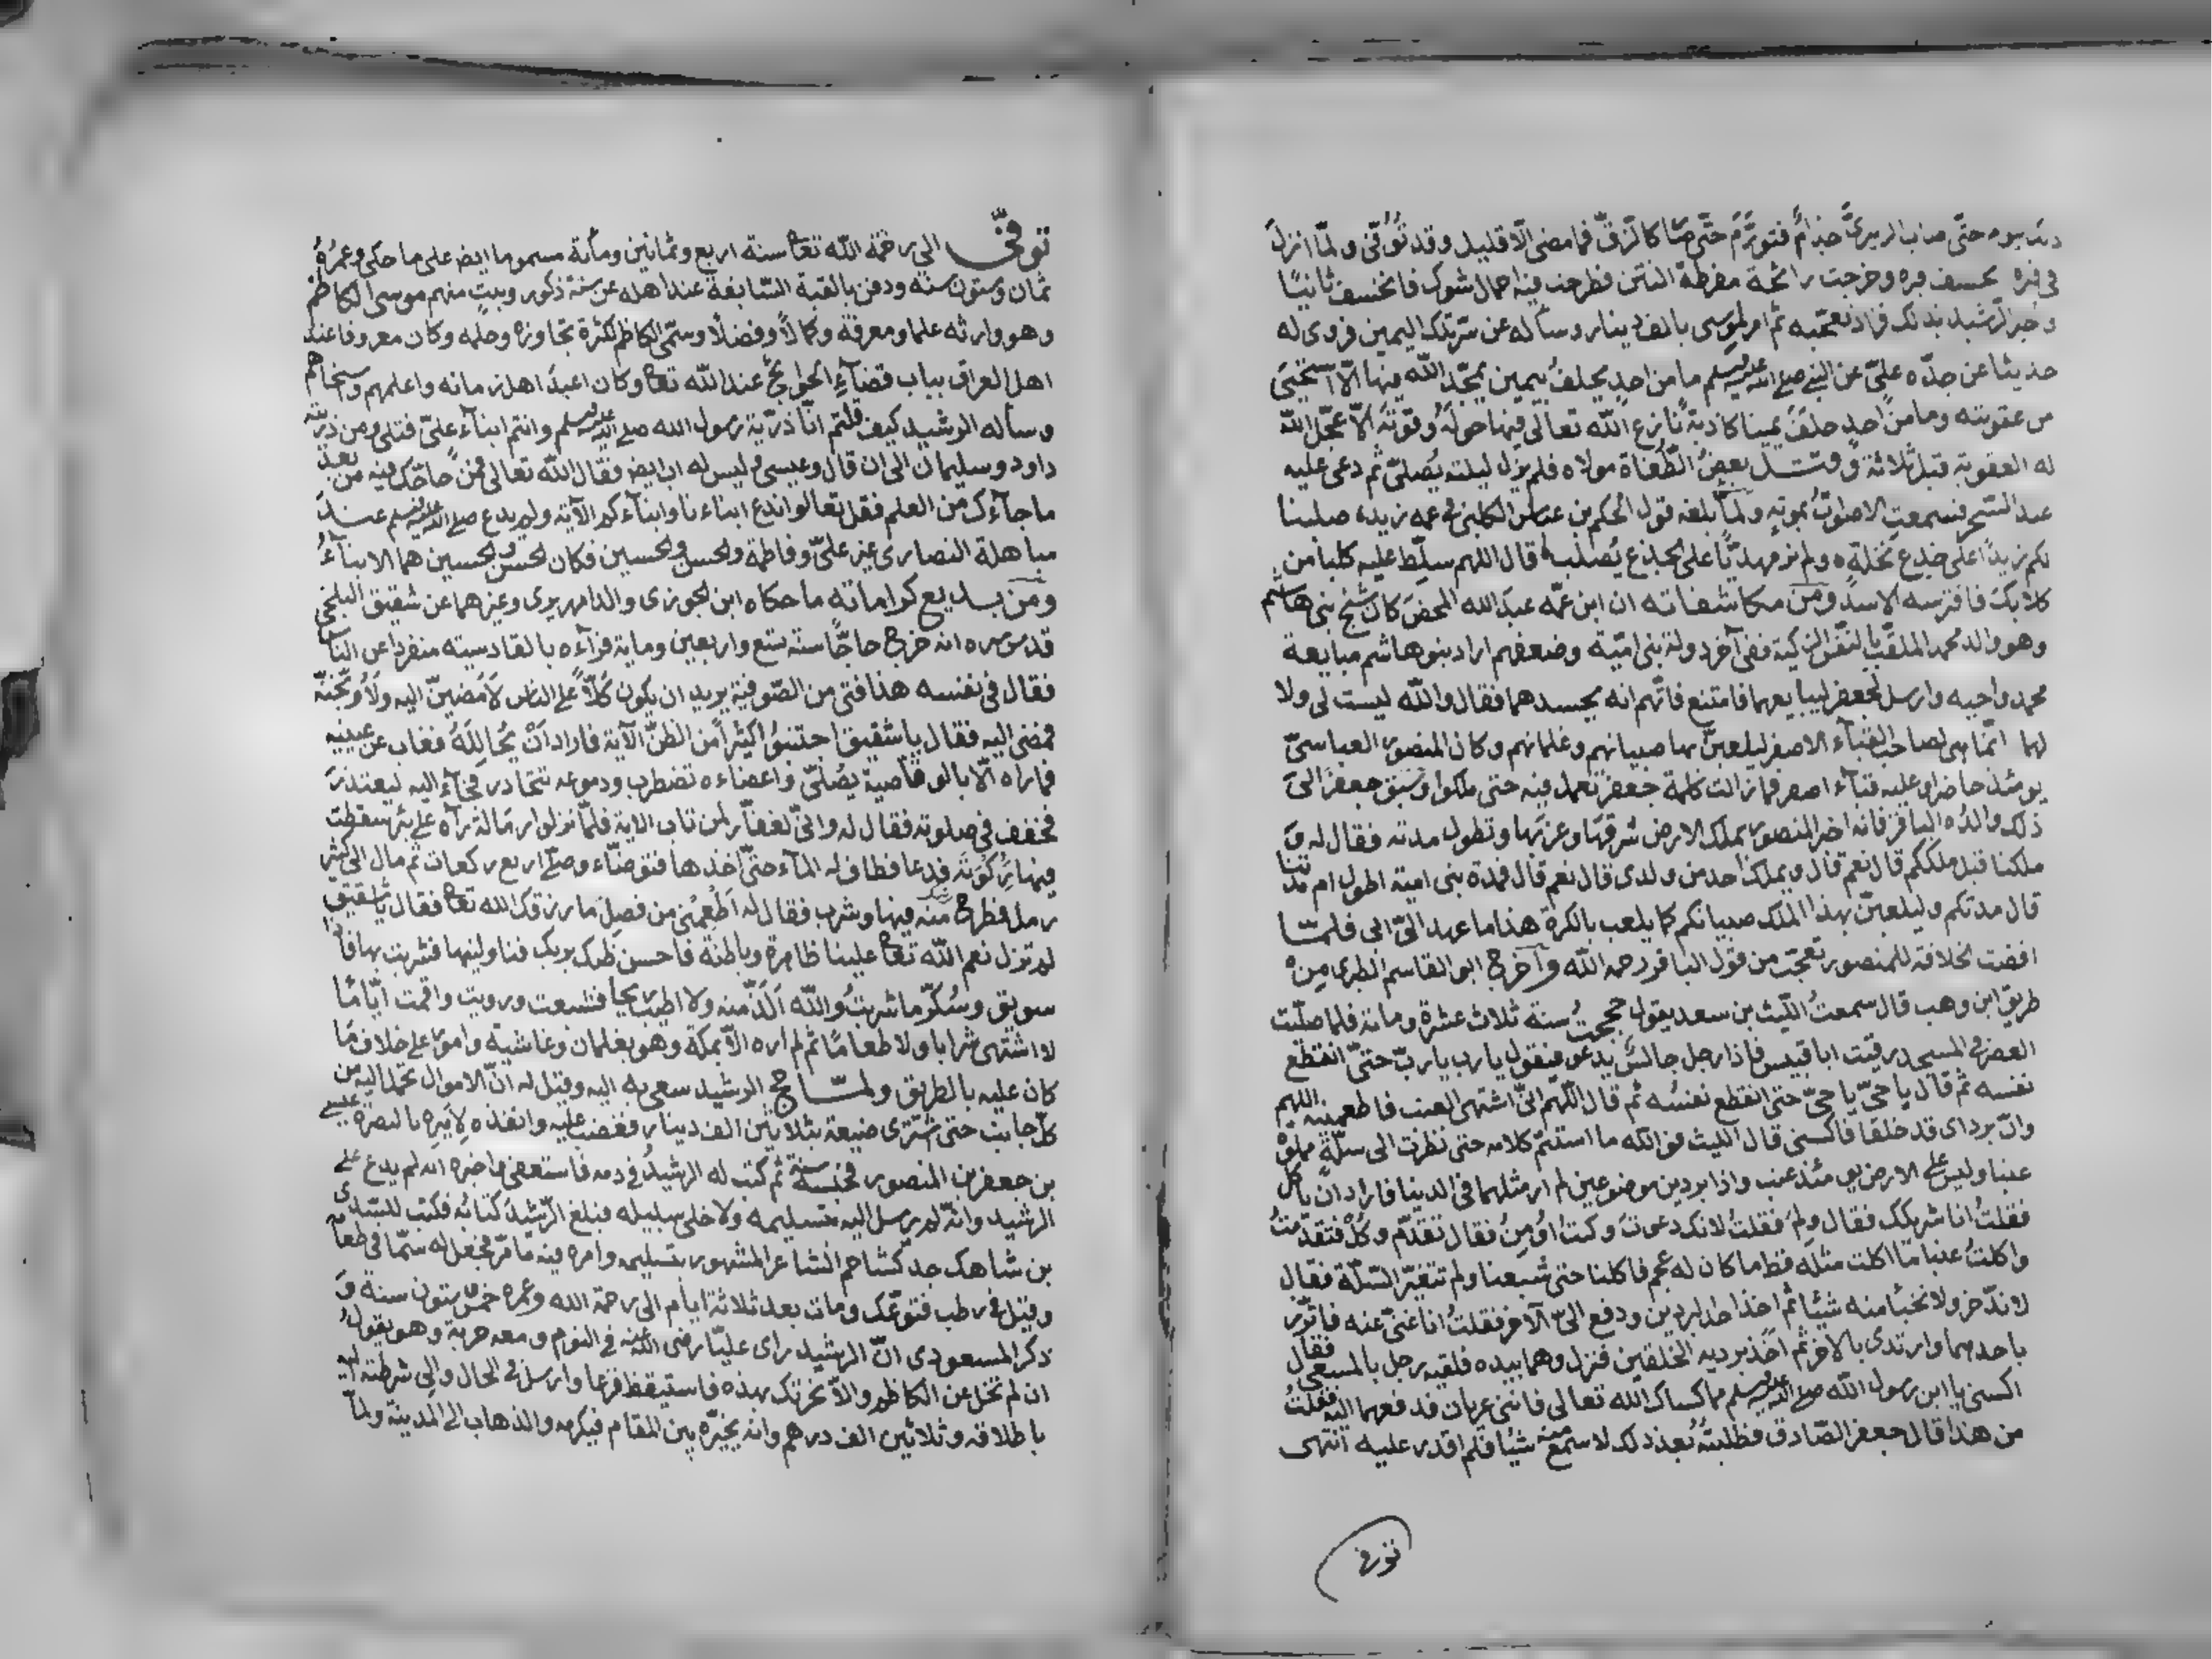 يومه حتى اصاب الزبيرى جذام فتورم حتى صار كالزق فما مضى الا قليل وقد توفى ولما انزل
فى قبره خسف قبره وخرجت رائحة مفرطة النتن فطرحت فيه احمال شوك فانخسف ثانيا
الرشيد بذلك فزاد تعجبه ثم امر لموسى بالف دينار وسأله عن سر تلك اليمين فروى له
حديثا عن جده علىّ عن النبى صلى الله عليه وسلم ما من احد يحلف بيمين يمجد الله فيها الا استحيى
من عقوبته وما من احد حلف يمينا كاذبة نازع الله تعالى فيها حوله وقوته الا عجل الله
له العقوبة قبل ثلاثة وقتـــل بعض الطغاة مولاه فلم يزل ليلته يُصلىّ ثم دعى عليه
عند السحر فسمعت الاصوات بموته ولما بلغه قول الحكم بن عباس الكلبى فى عمه زيد، صلبنا
لكم زيدا على جذع نخلة ه ولم نر مهديّا على الجذع يُصلب قال اللهم سلّط عليه كلبا من
كلابك فافترسه الاسد ومن مكاشفاته ان ابن عمه عبد الله المحض كان شيخ بنى هاشم
وهو والد محمد الملقب بالنفس الزكية ففى آخر دولة بنى امية وضعفهم اراد بنو هاشم مبايعة
محمد واخيه وارسل لجعفر ليبايعهما فامتنع فاتهم انه يحسدهما فقال والله ليست لى ولا
لهما انما هى لصاحب القباء الاصفر ليلعبن بها صبيانهم وغلمانهم وكان المنصور العباسىّ
يومئذ حاضرا وعليه قباء اصفر فما زالت كلمة جعفر تعمل فيه حتى ملكوا وسبق جعفر الى
ذلك والده الباقر فانه اخبر المنصور بملك الارض شرقها وغربها وتطول مدته فقال له و
ملكنا قبل ملككم قال نعم قال ويملك احد من ولدى قال نعم قال فمدة بنى امية اطول ام مدتنا
قال مدتكم وليلعبن بهذا الملك صبيانكم كما يلعب بالكرة هذا ما عهد الىّ ابى فلمـّـا
افضت الخلافة للمنصور تعجب من قول الباقر رحمه الله واخرج ابو القاسم الطبرى من
طريق ابن وهب قال سمعت الليث بن سعد يقول حججت سنة ثلاث عشرة ومائة فلما صلّيت
العصر فى المسجد رقيت ابا قبيس فاذا رجل جالس يدعو فيقول يا رب يا ربّ حتىّ انقطع
نفسه ثم قال يا حىّ يا حىّ حتى انقطع نفسه ثم قال اللهم انى اشتهى العنب فاطعمنيه اللهم
وان برداى قد خلقا فاكسنى قال الليث فوالله ما استتم كلامه حتى نظرت الى سلّة مملوة
عنبا وليس على الارض يومئذ عنب واذا بردين موضوعين لم ار مثلهما فى الدنيا فاراد ان يأكل
فقلت انا شريكك فقال ولم فقلت لانك دعوت وكنت اؤمن فقال تقدّم وكل فتقدمت
واكلت عنبا ما اكلت مثله قط ما كان له عجم فاكلنا حتى شبعنا ولم تتغيّر السّلة فقال
لا تدّخر ولا تخبأ منه شيئا ثم اخذ احد البردين ودفع الىّ الآخر فقلت انا غنىّ عنه فاتزر
باحدهما وارتدى بالاخر ثم اخذ برديه الخلقين فنزل وهما بيده فلقيه رجل بالمسعى فقال
اكسنى يا ابن رسول الله صلى الله عليه وسلم مما كساك الله تعالى فاننى عريان فدفعهما اليه فقلت
من هذا قال جعفر الصّادق فطلبته بعد ذلك لاسمع منه شيئا فلم اقدر عليه انتهى
توفى
توفّى الى رحمة الله تعا سنة اربع وثمانين ومائة مسموما ايض على ما حكى وعمره
ثمان وستون سنة ودفن بالقبة السّابقة عند اهله عن ستة ذكور وبنت منهم موسى الكاظم
وهو وارثه علما ومعرفة وكمالا وفضلا وسمّى الكاظم لكثرة تجاوزه وحلمه وكان معروفا عند
اهل العراق بباب قضآء الحوائج عند الله تعا وكان اعبد اهل زمانه واعلمهم واسخاهم
وسأله الرشيد كيف قلتم انّا ذريّة رسول الله صلى الله عليه وسلم وانتم ابناء علىّ فتلى ومن ذريته
داود وسليمان الى ان قال وعيسى وليس له اب ايض فقال الله تعالى فمن حاجّك فيه من بعد
ما جاءك من العلم فقل تعالوا ندع ابناءنا وابناءكم الآية ولم يدع صلى الله عليه وسلم عنــد
مباهلة النصارى غير علىّ وفاطمة والحسن والحسين فكان الحسن والحسين هما الابناءُ
ومن بــديع كراماته ما حكاه ابن الجوزى والرامهرمزى وغيرهما عن شقيق البلخى
قدس سره انه خرج حاجّا سنة تسع واربعين وماية فرآءه بالقادسية منفردا عن الناس
فقال فى نفسه هذا فتى من الصّوفية يريد ان يكون كَلّا على الناس لامضينّ اليه ولاوبخنّه
فمضى اليه فقال يا شقيق اجتنبوا كثيرا من الظنّ الآية فاراد ان يحالله فغاب عن عينيه
فما رآه الا بالواقصية يُصلىّ واعضاءه تضطرب ودموعه تتحادر فجآء اليه ليعتذر
فخفف فى صلوته فقال له وانى لغفار لمن تاب الاية فلما نزلوا رمالة رآه على بئر سقطت
فيها ركوته فدعا فطاف له المآء حتىّ اخذها فتوضاء وصلّى اربع ركعات ثم مال الى كثيب
رمل فطرح منه فيها وشرب فقال له اطعمنى من فضل ما رزقك الله تعا فقال يا شقيق
لم تزل نعم الله تعا علينا ظاهرة وباطنة فاحسن ظنك بربك فناولنيها فشربت بها فاذا
سويق وسُكرّ ما شربت والله الذّ منه ولا اطيب ريحا فشبعت ورويت واقمت ايّاما
لا اشتهى شرابا ولا طعاما ثم لم اره الا بمكة وهو بغلمان وغاشية وامور على خلاف ما
كان عليه بالطريق ولمــّـا حج الرشيد سعى به اليه وقيل له انّ الاموال تحمل اليه من
كل جانب حتى اشترى ضيعة بثلاثين الف دينار فغضب عليه وانفذه لاميره بالبصرة عيسى
بن جعفر بن المنصور فحبسه سنة ثم كتب له الرشيد فى دمه فاستعفى واخبره انه لم يدع على
الرشيد وانه لم يرسل اليه بتسليمه والا خلى سبيله فبلغ الرّشيد كتابه فكتب للسّندى
بن شاهك جد كشاجم الشاعر المشهور بتسليمه وامره فيه فجعل له سمّا فى طعامه
وقيل فى رطب فتوعّك ومات بعد ثلاثة ايام الى رحمة الله وعمره خمس وستون سنة و
ذكر المسعودى انّ الرشيد راى عليّا رضى الله عنه فى النوم ومعه حربة وهو يقول
ان لم تخل عن الكاظم والاّ نحرتك بهذه فاستيقظ فزعا وارسل فى الحال والى شرطته اليه
باطلاقه وثلاثين الف درهم وانه يخيّره بين المقام فيكرمه والذهاب الى المدينة ولمّا